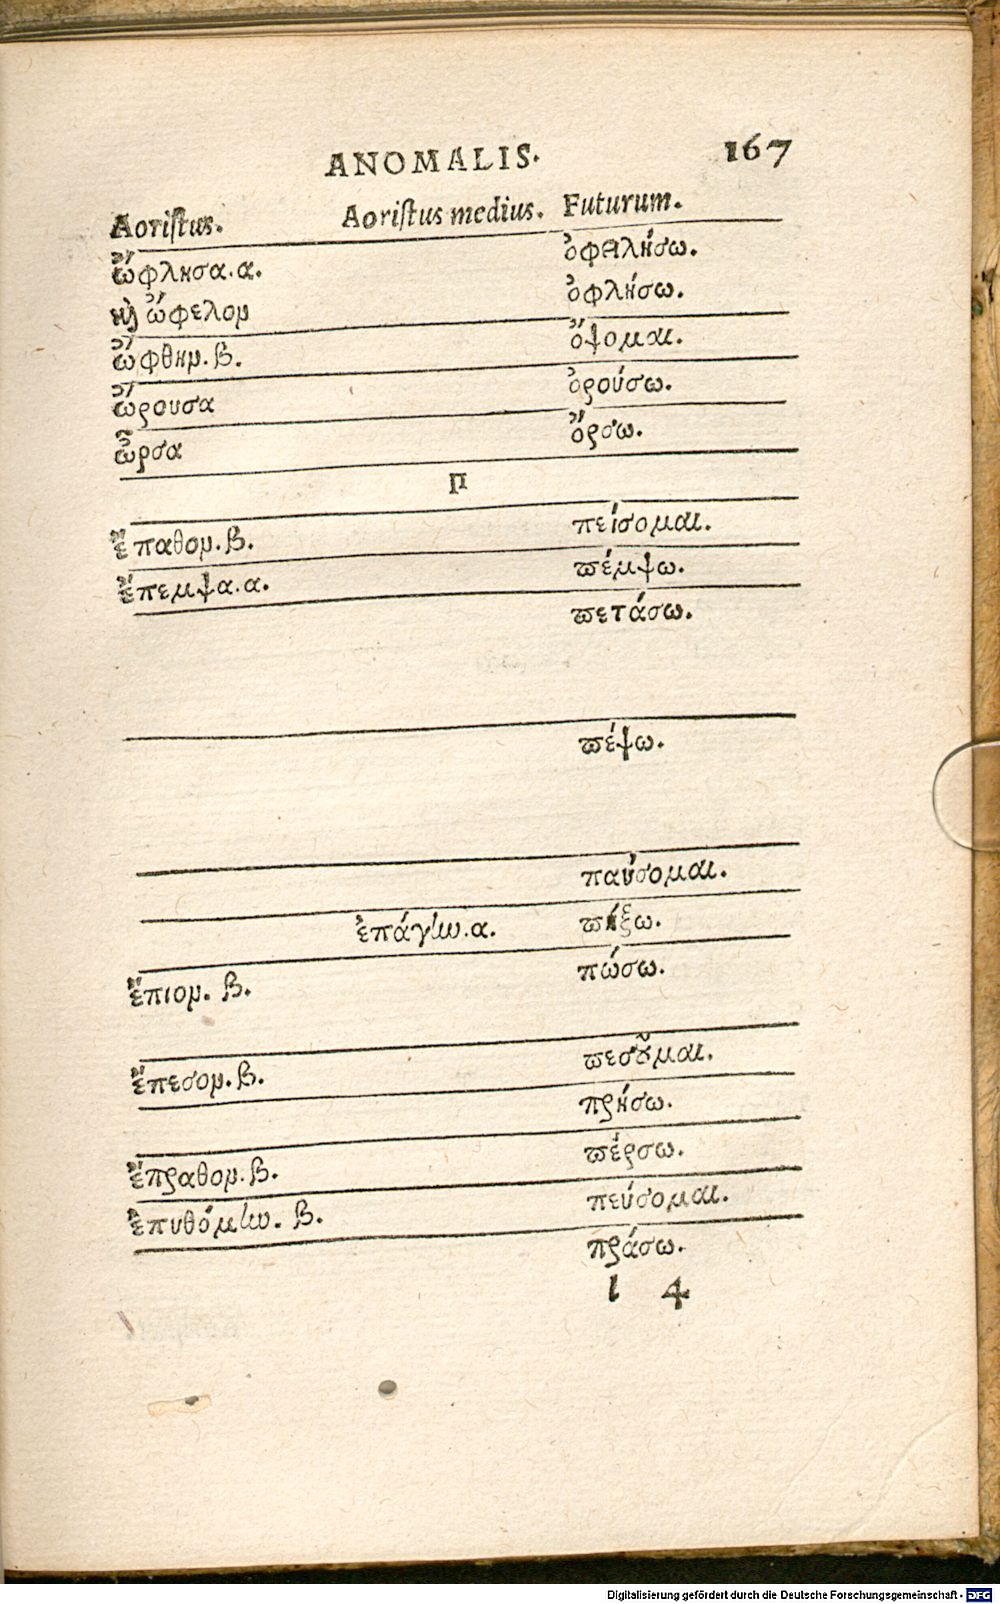 ANOMALIS. 167
Aoristus. Aoristus medius. Futurum.
ὤφλησα. α. ὀφειλήσω.
καὶ ὤφελον ὀφλήσω.
ὤφθην. β. ὄψομαι.
ὤρουσα ὀρούσω.
ὦρσα ὄρσω.
Π
ἔπαθον. β. πείσομαι.
ἔπεμψα. α. πέμψω.
πετάσω.
πέψω.
παύσομαι.
ἐπάγην. α. πήξω.
ἔπιον. β. πώσω.
ἔπεσον. β. πεσοῦμαι.
πρήσω.
ἔπραθον. β. πέρσω.
ἐπυθόμην. β. πεύσομαι.
πράσω.
l 4
Digitalisierung gefördert durch die Deutsche Forschungsgemeinschaft - DFG